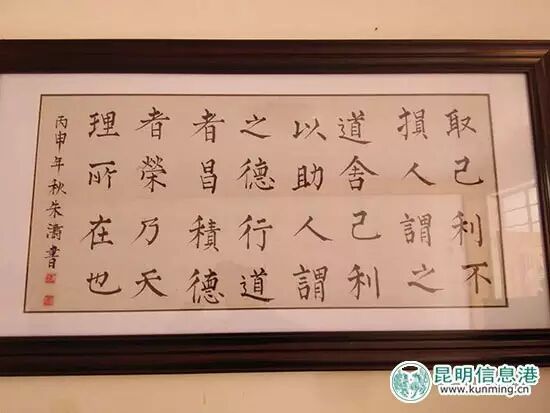 取己利不
損人謂之
道舍己利
以助人謂
之德行道
者昌積德
者榮乃天
理所在也
丙申年秋朱濤書
昆明信息港
www.kunming.cn